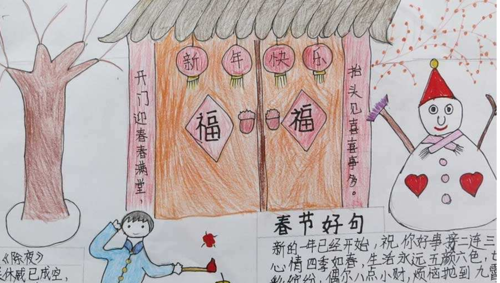 新年快乐
开门迎春春满堂,
抬头见喜喜事多。
福
福
春节好句
新的一年已经开始,祝你好事接二连三
心情四季如春,生活永远五颜六色,七
彩缤纷,偶尔八点小财,烦恼抛到九霄
《除夜》
休戚已成空,